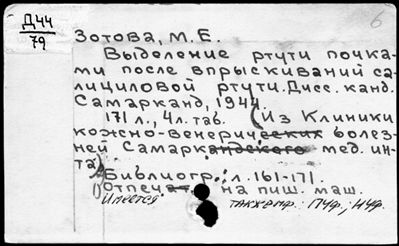 Д44
79
6
Зотова, М.Е.
Выделение ртути почка-
ми после впрыскиваний са-
лициловой ртути. Дисс. канд.
Самарканд, 1944.
171 л., 4л. таб. (Из Клиники
кожно-венерических болез-
ней Самаркандского мед. ин-
та)
Библиогр.: л. 161-171.
Отпечат. на пиш. маш.
Имеется также мф.: ПУФ;